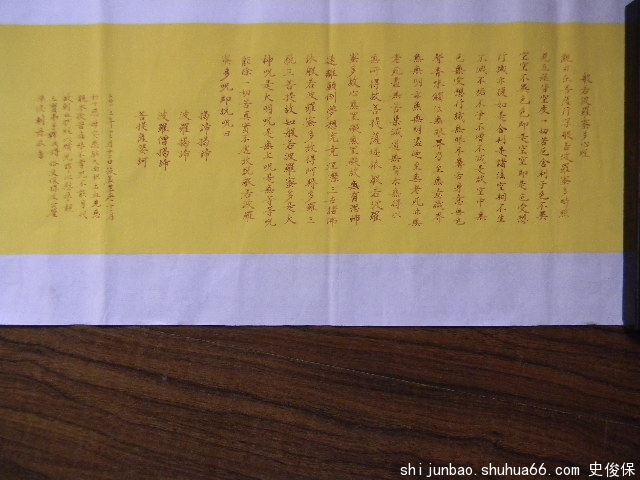 般若波羅蜜多心經
觀自在菩薩行深般若波羅蜜多時照
見五蘊皆空度一切苦厄舍利子色不異
空空不異色色即是空空即是色受想
行識亦復如是舍利子是諸法空相不生
不滅不垢不淨不增不減是故空中無
色無受想行識無眼耳鼻舌身意無色
聲香味觸法無眼界乃至無意識界
無無明亦無無明盡乃至無老死亦無
老死盡無苦集滅道無智亦無得以
無所得故菩提薩埵依般若波羅
蜜多故心無罣礙無罣礙故無有恐怖
遠離顛倒夢想究竟涅槃三世諸佛
依般若波羅蜜多故得阿耨多羅三
藐三菩提故知般若波羅蜜多是大
神咒是大明咒是無上咒是無等等咒
能除一切苦真實不虛故說般若波羅
蜜多咒即說咒曰
揭諦揭諦
波羅揭諦
波羅僧揭諦
菩提薩婆訶
shijunbao.shuhua66.com 史俊保